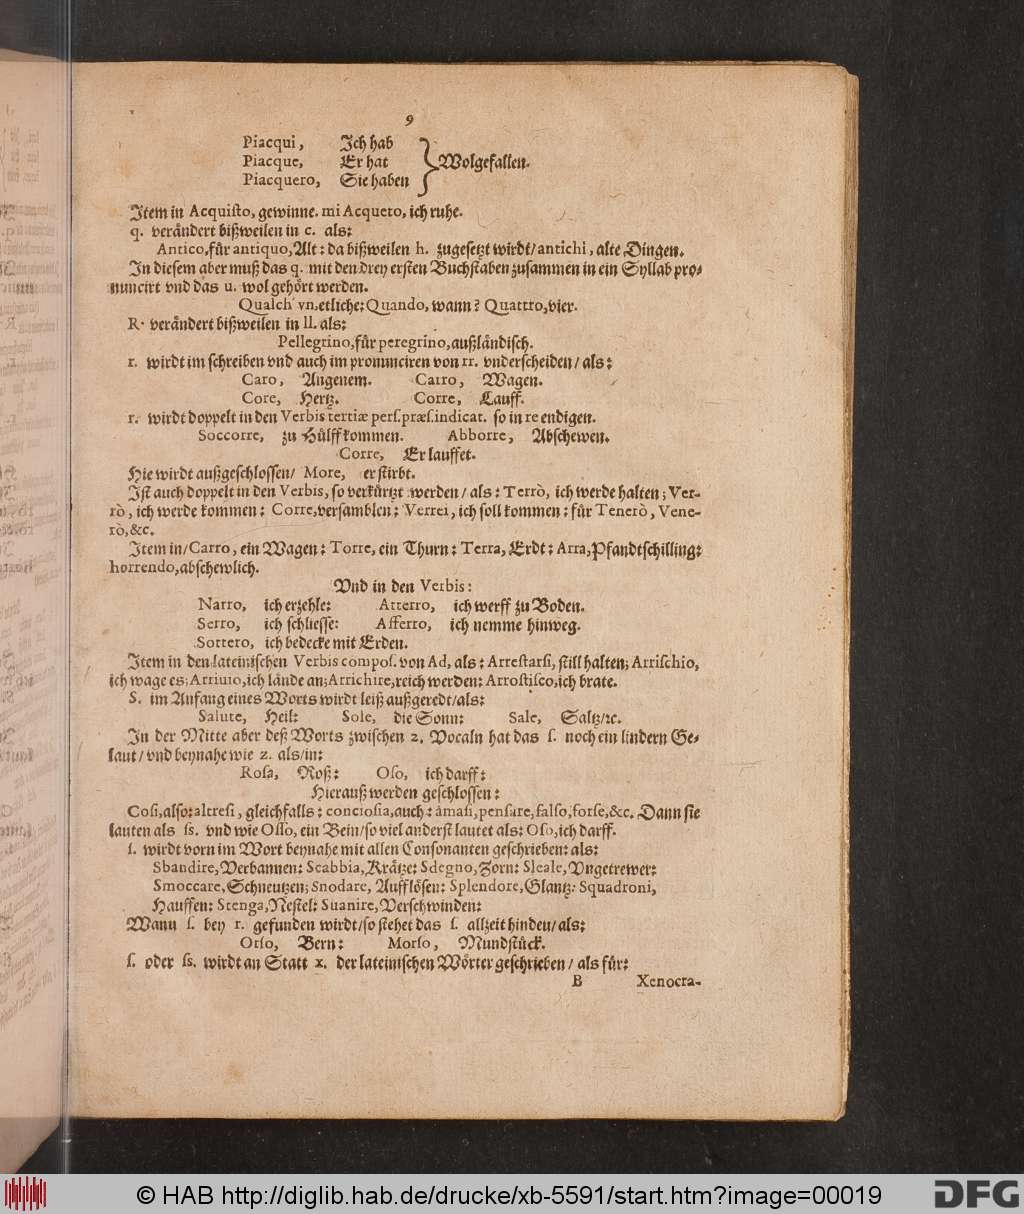 9
Piacqui, Ich hab
Piacque, Er hat } Wolgefallen.
Piacquero, Sie haben
Item in Acquisto, gewinne. mi Acqueto, ich ruhe.
q. verändert bißweilen in c. als:
Antico, für antiquo, Alt: da bißweilen h. zugesetzt wirdt/ antichi, alte Dingen.
In diesem aber muß das q. mit den drey ersten Buchstaben zusammen in ein Syllab pro-
nuncirt vnd das u. wol gehört werden.
Qualch' vn, etliche: Quando, wann? Quattro, vier.
R. verändert bißweilen in ll. als:
Pellegrino, für peregrino, außländisch.
r. wirdt im schreiben vnd auch im pronunciren von rr. vnderscheiden/ als:
Caro, Angenem. Carro, Wagen.
Core, Hertz. Corre, Lauff.
r. wirdt doppelt in den Verbis tertiæ pers. præs. indicat. so in re endigen.
Soccorre, zu Hülff kommen. Abborre, Abschewen.
Corre, Er lauffet.
Hie wirdt außgeschlossen/ More, er stirbt.
Ist auch doppelt in den Verbis, so verkürtzt werden/ als: Terrò, ich werde halten; Ver-
rò, ich werde kommen: Corre, versamblen: Verrei, ich soll kommen: für Tenerò, Vene-
rò, &c.
Item in/ Carro, ein Wagen: Torre, ein Thurn: Terra, Erdt: Arra, Pfandtschilling:
horrendo, abschewlich.
Vnd in den Verbis:
Narro, ich erzehle: Atterro, ich werff zu Boden.
Serro, ich schliesse: Afferro, ich nemme hinweg.
Sottero, ich bedecke mit Erden.
Item in den lateinischen Verbis compos. von Ad, als: Arrestarsi, still halten; Arrischio,
ich wage es; Arriuio, ich lände an; Arrichire, reich werden: Arrostisco, ich brate.
S. im Anfang eines Worts wirdt leiß außgeredt/ als:
Salute, Heil: Sole, die Sonn: Sale, Saltz/ ꝛc.
In der Mitte aber deß Worts zwischen 2. Vocaln hat das s. noch ein lindern Ge-
laut/ vnd beynahe wie z. als/ in:
Rosa, Roß: Oso, ich darff:
Hierauß werden geschlossen:
Cosi, also: altresi, gleichfalls: conciosia, auch: àmasi, pensare, falso, forse, &c. Dann sie
lauten als ss. vnd wie Osso, ein Bein/ so viel anderst lautet als: Oso, ich darff.
s. wirdt vorn im Wort beynahe mit allen Consonanten geschrieben: als:
Sbandire, Verbannen: Scabbia, Krätze: Sdegno, Zorn: Sleale, Vngetrewer:
Smoccare, Schneutzen; Snodare, Aufflösen: Splendore, Glantz: Squadroni,
Hauffen: Stenga, Nestel: Suanire, Verschwinden:
Wann s. bey r. gefunden wirdt/ so stehet das s. allzeit hinden/ als:
Orso, Bern: Morso, Mundstück.
s. oder ss. wirdt an Statt x. der lateinischen Wörter geschrieben/ als für:
B Xenocra-
© HAB http://diglib.hab.de/drucke/xb-5591/start.htm?image=00019
DFG